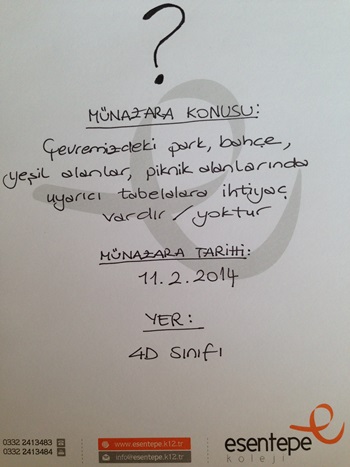 ?
MÜNAZARA KONUSU:
Çevremizdeki park, bahçe,
yeşil alanlar, piknik alanlarında
uyarıcı tabelalara ihtiyaç
vardır / yoktur
MÜNAZARA TARİHİ:
11.2.2014
YER:
4D sınıfı
0332 2413483
0332 2413484
www.esentepe.k12.tr
info@esentepe.k12.tr
esentepe
koleji